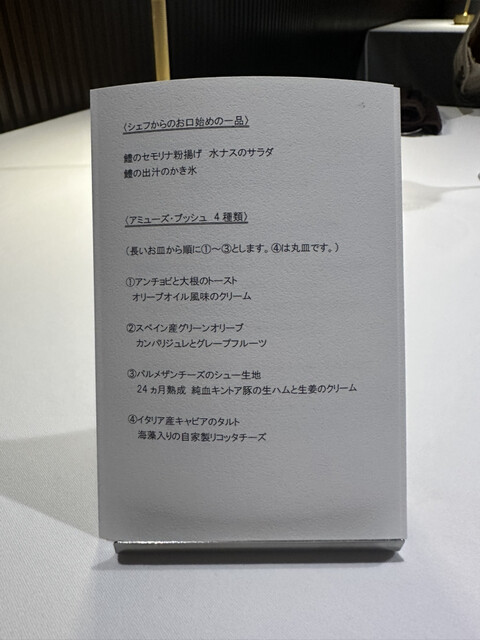 〈シェフからのお口始めの一品〉
鱧のセモリナ粉揚げ 水ナスのサラダ
鱧の出汁のかき氷
〈アミューズ・ブッシュ 4種類〉
(長いお皿から順に①〜③とします。④は丸皿です。)
①アンチョビと大根のトースト
オリーブオイル風味のクリーム
②スペイン産グリーンオリーブ
カンパリジュレとグレープフルーツ
③パルメザンチーズのシュー生地
24ヵ月熟成 純血キントア豚の生ハムと生姜のクリーム
④イタリア産キャビアのタルト
海藻入りの自家製リコッタチーズ